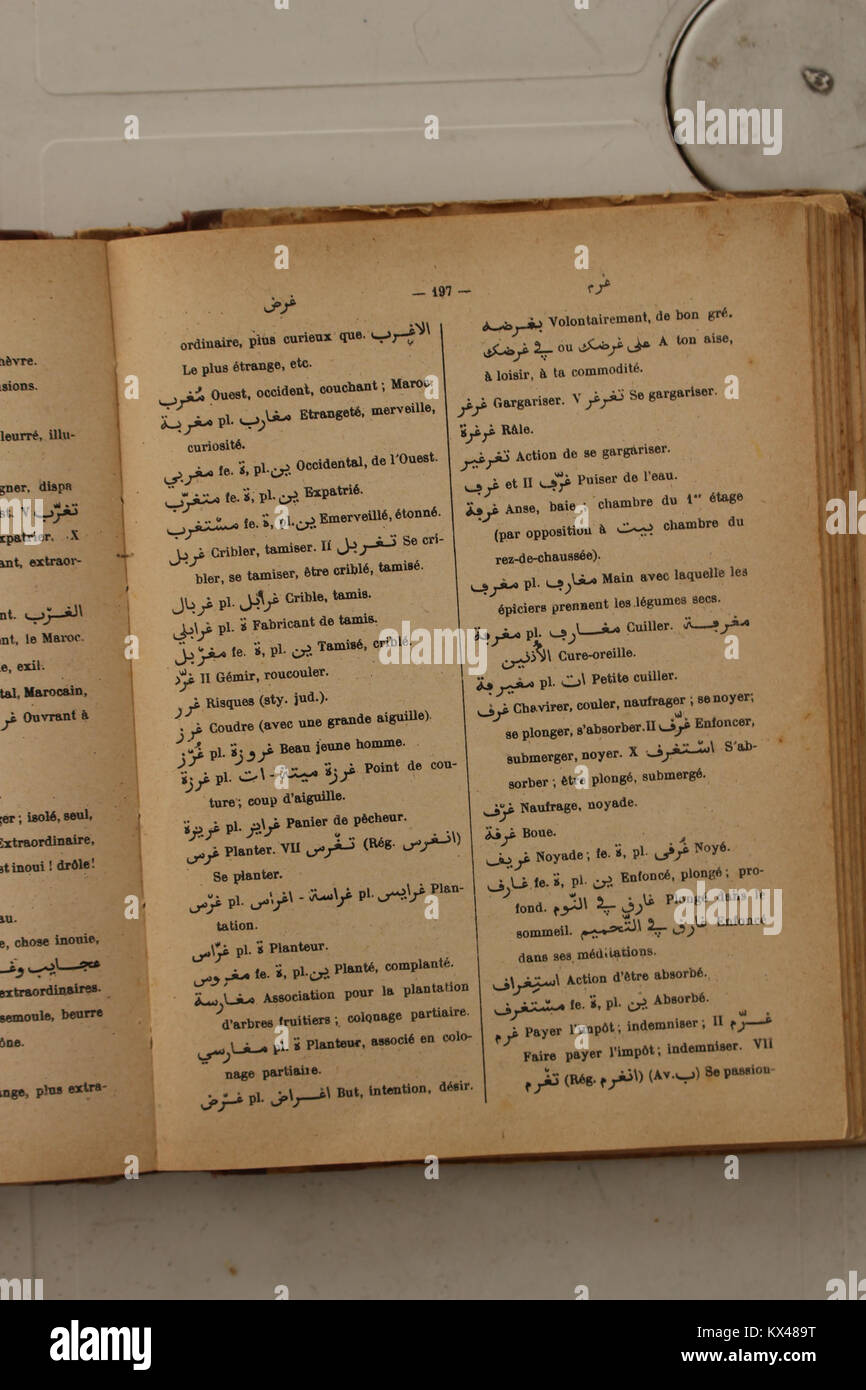 hèvre.
sions.
leurré, illu-
gner, dispa
st. V تغرّب
xpatrier. X
ant, extraor-
nt. الغرّب
ont, le Maroc.
e, exil.
tal, Marocain,
Ouvrant à
ger ; isolé, seul,
Extraordinaire,
st inoui ! drôle!
au.
e, chose inouie,
extraordinaires.
semoule, beurre
ône.
ange, plus extra-
— 197 —
غرض
ordinaire, plus curieux que. الاغرب
Le plus étrange, etc.
مغرب Ouest, occident, couchant ; Maroc.
مغربة pl. مغارب Etrangeté, merveille,
curiosité.
مغربي fe. ة, pl. ين Occidental, de l'Ouest.
متغرّب fe. ة, pl. ين Expatrié.
مستغرب fe. ة, pl. ين Emerveillé, étonné.
غربل Cribler, tamiser. II تغربل Se cri-
bler, se tamiser, être criblé, tamisé.
غربال pl. غرابل Crible, tamis.
غرابلي pl. ة Fabricant de tamis.
مغربل fe. ة, pl. ين Tamisé, criblé.
غرّد II Gémir, roucouler.
غرر Risques (sty. jud.).
غرز Coudre (avec une grande aiguille).
غرز pl. غروزة Beau jeune homme.
غرزة pl. ات - غرزة ميتة Point de cou-
ture ; coup d'aiguille.
غريزة pl. غرايز Panier de pêcheur.
غرس Planter. VII تغرس (Rég. انغرس)
Se planter.
غرس pl. غراسة - اغراس pl. غرايس Plan-
tation.
غرّاس pl. ة Planteur.
مغروس fe. ة, pl. ين Planté, complanté.
مغارسة Association pour la plantation
d'arbres fruitiers ; colonage partiaire.
مغارسي pl. ة Planteur, associé en colo-
nage partiaire.
غرض pl. اغراض But, intention, désir.
غرم
بغرضه Volontairement, de bon gré.
على غرضك ou في غرضك A ton aise,
à loisir, à ta commodité.
غرغر Gargariser. V تغرغر Se gargariser.
غرغرة Râle.
تغرغير Action de se gargariser.
غرف et II غرّف Puiser de l'eau.
غرفة Anse, baie ; chambre du 1er étage
(par opposition à بيت chambre du
rez-de-chaussée).
مغرف pl. مغارف Main avec laquelle les
épiciers prennent les légumes secs.
مغرفة pl. مغارف Cuiller. مغرفة
الأذنين Cure-oreille.
مغيرفة pl. ات Petite cuiller.
غرف Chavirer, couler, naufrager ; se noyer;
se plonger, s'absorber. II غرّف Enfoncer,
submerger, noyer. X استغرف S'ab-
sorber ; être plongé, submergé.
غرف Naufrage, noyade.
غرفة Boue.
غريف Noyade ; fe. ة, pl. غرفى Noyé.
غارف fe. ة, pl. ين Enfoncé, plongé ; pro-
fond. غارف في النّوم Plongé dans le
sommeil. غارف في التّخميم Enfoncé
dans ses méditations.
استغراف Action d'être absorbé.
مستغرف fe. ة, pl. ين Absorbé.
غرم Payer l'impôt ; indemniser ; II غرّم
Faire payer l'impôt ; indemniser. VII
تغرم (Rég. انغرم) (Av. ب) Se passion-
alamy
Image ID: KX489T
www.alamy.com